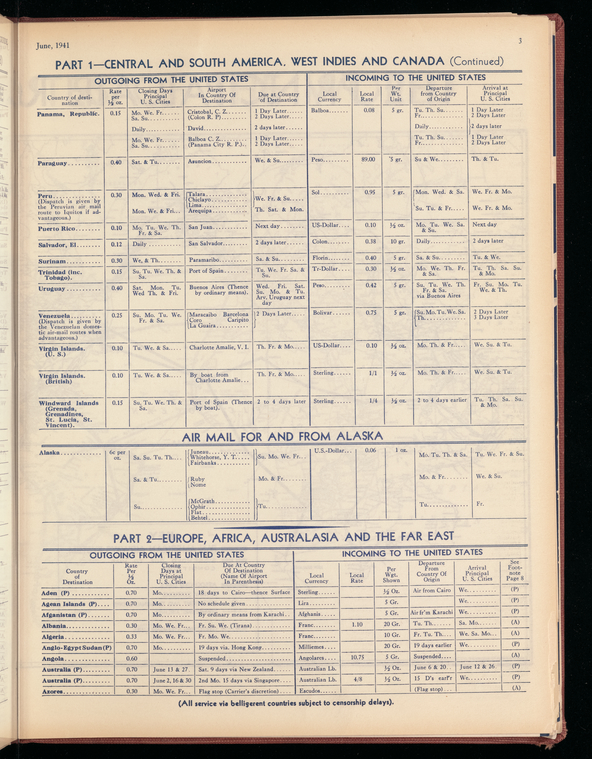 June, 1941
3
PART 1—CENTRAL AND SOUTH AMERICA. WEST INDIES AND CANADA (Continued)
OUTGOING FROM THE UNITED STATES INCOMING TO THE UNITED STATES
Country of desti-nation Rate per ½ oz. Closing Days Principal U. S. Cities Airport In Country Of Destination Due at Country of Destination Local Currency Local Rate Per Wt. Unit Departure from Country of Origin Arrival at Principal U. S. Cities
Panama, Republic. 0.15 Mo. We. Fr. Cristobal, C. Z. 1 Day Later Balboa 0.08 5 gr. Tu. Th. Su. 1 Day Later
Sa. Su. (Colon R. P) 2 Days Later Fr. 2 Days Later
Daily David 2 days later Daily 2 days later
Mo. We. Fr. Balboa C. Z. 1 Day Later Tu. Th. Su. 1 Day Later
Sa. Su. (Panama City R. P.) 2 Days Later Fr. 2 Days Later
Paraguay 0.40 Sat. & Tu. Asuncion We. & Su. Peso 89.00 5 gr. Su & We. Th. & Tu.
Peru 0.30 Mon. Wed. & Fri. Talara We. Fr. & Su. Sol 0.95 5 gr. Mon. Wed. & Su. We. Fr. & Mo.
(Dispatch is given by the Peruvian air mail route to Iquitos if ad-vantageous.) Chiclayo
Lima
Mon. We. & Fri. Arequipa Th. Sat. & Mon. Su. Tu. & Fr. We. Fr. & Mo.
Puerto Rico 0.10 Mo. Tu. We. Th. Fr. & Sa. San Juan Next day US-Dollar 0.10 ½ oz. Mo. Tu. We. Sa. & Su. Next day
Salvador, El 0.12 Daily San Salvador 2 days later Colon 0.38 10 gr. Daily 2 days later
Surinam 0.30 We. & Th. Paramaribo Sa. & Su. Florin 0.40 5 gr. Sa. & Su. Tu. & We.
Trinidad (inc. Tobago). 0.15 Su. Tu. We. Th. & Sa. Port of Spain Tu. We. Fr. Sa. & Su. Tr-Dollar 0.30 ½ oz. Mo. We. Th. Fr. & Sa. Tu. Th. Sa. Su. & Mo.
Uruguay 0.40 Sat. Mon. Tu. Wed Th. & Fri. Buenos Aires (Thence by ordinary means). Wed. Fri. Sat. Su. Mo. & Tu. Arv. Uruguay next day Peso 0.42 5 gr. Su. Tu. We. Th. Fr. & Sa. via Buenos Aires Fr. Su. Mo. Tu. We. & Th.
Venezuela 0.25 Su. Mo. Tu. We. Fr. & Sa. Maracaibo Barcelona 2 Days Later Bolivar 0.75 5 gr. Su. Mo. Tu. We. Sa. 2 Days Later
(Dispatch is given by the Venezuelan domes-tic air-mail routes when advantageous.) Coro Caripito Th. 3 Days Later
La Guaira
Virgin Islands. (U. S.) 0.10 Tu. We. & Sa. Charlotte Amalie, V. I. Th. Fr. & Mo. US-Dollar 0.10 ½ oz. Mo. Th. & Fr. We. Su. & Tu.
Virgin Islands. (British) 0.10 Tu. We. & Sa. By boat from Charlotte Amalie Th. Fr. & Mo. Sterling 1/1 ½ oz. Mo. Th. & Fr. We. Su. & Tu.
Windward Islands (Grenada, Grenadines, St. Lucia, St. Vincent). 0.15 Su. Tu. We. Th. & Sa. Port of Spain (Thence by boat). 2 to 4 days later Sterling 1/4 ½ oz. 2 to 4 days earlier Tu. Th. Sa. Su. & Mo.
AIR MAIL FOR AND FROM ALASKA
Alaska 6c per oz. Sa. Su. Tu. Th. Juneau Su. Mo. We. Fr. U.S.-Dollar 0.06 1 oz. Mo. Tu. Th. & Sa. Tu. We. Fr. & Su.
Whitehorse, Y. T.
Fairbanks
Sa. & Tu. Ruby Mo. & Fr. Mo. & Fr. We. & Su.
Nome
Su. McGrath Tu. Tu. Fr.
Ophir
Flat
Bethel
PART 2—EUROPE, AFRICA, AUSTRALASIA AND THE FAR EAST
OUTGOING FROM THE UNITED STATES INCOMING TO THE UNITED STATES
Country of Destination Rate Per ½ Oz. Closing Days at Principal U. S. Cities Due At Country Of Destination (Name Of Airport In Parenthesis) Local Currency Local Rate Per Wgt. Shown Departure From Country Of Origin Arrival Principal U. S. Cities See Foot-note Page 8
Aden (P) 0.70 Mo. 18 days to Cairo—thence Surface Sterling ½ Oz. Air from Cairo We. (P)
Agean Islands (P) 0.70 Mo. No schedule given Lira 5 Gr. We. (P)
Afganistan (P) 0.70 Mo. By ordinary means from Karachi Afghanis 5 Gr. Air fr'm Karachi We. (P)
Albania 0.30 Mo. We. Fr. Fr. Su. We. (Tirana) Franc 1.10 20 Gr. Tu. Th. Sa. Mo. (A)
Algeria 0.33 Mo. We. Fr. Fr. Mo. We. Franc 10 Gr. Fr. Tu. Th. We. Sa. Mo. (A)
Anglo-Egypt Sudan (P) 0.70 Mo. 19 days via. Hong Kong Milliemes 20 Gr. 19 days earlier We. (P)
Angola 0.60 Suspended Angolares 10.75 5 Gr. Suspended (A)
Australia (P) 0.70 June 13 & 27 Sat. 9 days via New Zealand Australian Lb. ½ Oz. June 6 & 20 June 12 & 26 (P)
Australia (P) 0.70 June 2, 16 & 30 2nd Mo. 15 days via Singapore Australian Lb. 4/8 ½ Oz. 15 D's earl'r We. (P)
Azores 0.30 Mo. We. Fr. Flag stop (Carrier's discretion) Escudos (Flag stop) (A)
(All service via belligerent countries subject to censorship delays).